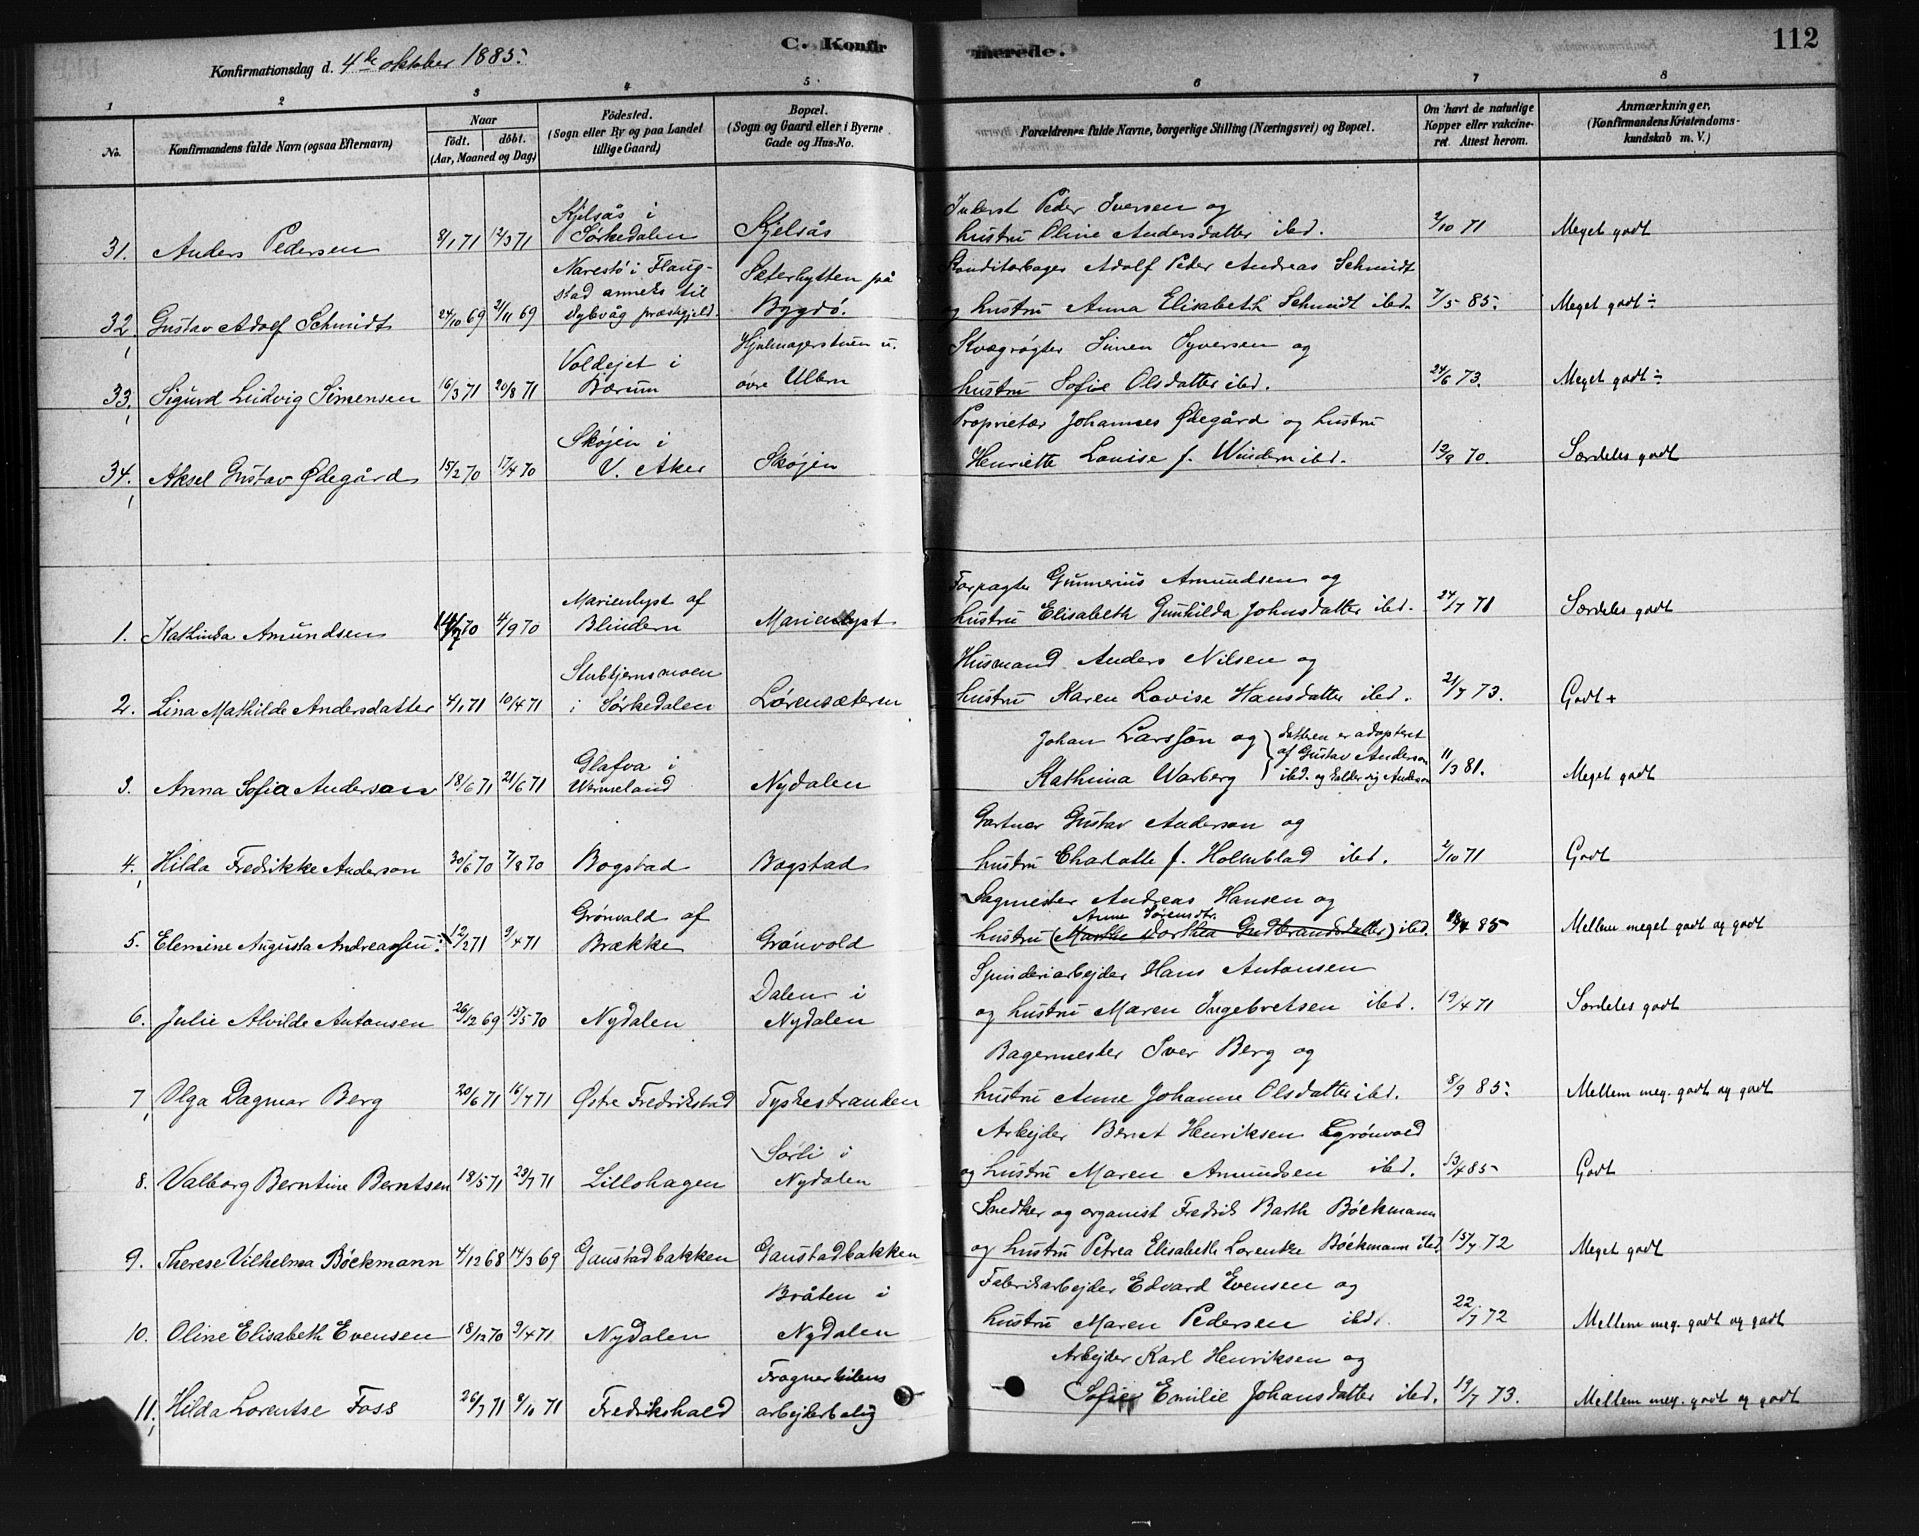 C. Konfirmerede. 112
Konfirmationsdag d. 4de oktober 1885.
1 2 3 4 5 6 7 8
No.
Konfirmandens fulde Navn (ogsaa Efternavn)
Naar
født. døbt.
(Aar, Maaned og Dag)
Fødested.
(Sogn eller By og paa Landet
tillige Gaard)
Bopæl.
(Sogn og Gaard eller i Byerne
Gade og Hus-No.
Forældrenes fulde Navne, borgerlige Stilling (Næringsvei) og Bopæl.
Om havt de naturlige
Kopper eller vakcine-
ret. Attest herom.
Anmærkninger.
(Konfirmandens Kristendoms-
kundskab m. V.)
Kjelsås i Inderst Peder Iversen og
31. Anders Pedersen 12/3 71 Sørkedalen Kjelsås hustru Oline Andersdatter ibd. 2/10 71 Meget godt
Narestø i Flaug- Sæterhytten på Konditorbager Adolf Peder Andreas Schmidt
stad anneks til
32. Gustav Adolf Schmidt 24/10 69 21/11 69 Dybvåg præstgjeld. Bygdø. og hustru Anna Elisabeth Schmidt ibd. 7/5 85. Meget godt ÷
Voldejet i Hjulmagerstuen u. Kvægrøgter Simen Syversen og
33. Sigurd Ludvig Simensen 16/3 71 20/8 71 Bærum øvre Ullern hustru Sofie Olsdatter ibd. 24/6 73. Meget godt ÷
Skøjen i Proprietær Johannes Ødegård og hustru
34. Aksel Gustav Ødegård 15/2 70 17/4 70 V. Aker Skøjen Henriette Louise f. Windern ibd. 13/9 70. Særdeles godt
Marienlyst af Forpagter Gunnerius Amundsen og
1. Kathinka Amundsen 4/9 70 Blindern Marienlyst hustru Elisabeth Gunhilda Johnsdatter ibd. 24/7 71 Særdeles godt
Stubtjernsmoen Husmand Anders Nilsen og
2. Lina Mathilde Andersdatter 4/1 71 10/4 71 i Sørkedalen Lørensæteren hustru Karen Lovise Hansdatter ibd. 21/7 73. Godt +
Glafva i Johan Larsson og datteren er adopteret
af Gustav Anderson
3. Anna Sofia Anderson 18/6 71 21/6 71 Wermeland Nydalen Kathrina Warberg ibd. og Anderson 11/3 81. Meget godt
Gartner Gustav Anderson og
4. Hilda Fredrikke Anderson 30/6 70 7/8 70 Bogstad Bogstad hustru Charlotte f. Holmblad ibd. 2/10 71 Godt
Grønvold af Sagmester Andreas Hansen og
Anne Sørensdtr.
5. Elemine Augusta Andreassen 12/2 71 9/4 71 Brække Grønvold hustru (Marthe Dorthea Gudbrandsdatter) ibd. 85 Mellem meget godt og godt
Dalen i Spinderiarbejder Hans Antonsen
6. Julie Alvilde Antonsen 26/12 69 15/5 70 Nydalen Nydalen og hustru Maren Ingebretsen ibd. 19/4 71 Særdeles godt
Bagermester Iver Berg og
7. Olga Dagmar Berg 20/6 71 16/7 71 Østre Fredrikstad Tyskestranden hustru Anne Johanne Olsdatter ibd. 8/9 85. Mellem meg. godt og godt
Sørli i Arbejder Bernt Henriksen Grønvold
8. Valborg Berntine Berntsen 18/5 71 23/7 71 Lillohagen Nydalen og hustru Maren Amundsen ibd. 13/4 85 Godt
Snedker og organist Fredrik Barth Bøckmann
9. Therese Vilhelma Bøckmann 4/12 68 14/3 69 Gaustadbakken Gaustadbakken og hustru Petrea Elisabeth Lorentze Bøckmann ibd. 15/7 72 Meget godt
Bråten i Fabrikarbejder Edvard Evensen og
10. Oline Elisabeth Evensen 18/12 70 9/4 71 Nydalen Nydalen hustru Maren Pedersen ibd. 22/7 72 Mellem meg. godt og godt
Frognerkilens Arbejder Karl Henriksen og
11. Hilda Lorentse Foss 26/7 71 8/10 71 Fredrikshald arbejderbolig Sofie Emilie Johansdatter ibd. 19/7 73. Mellem meg. godt og godt